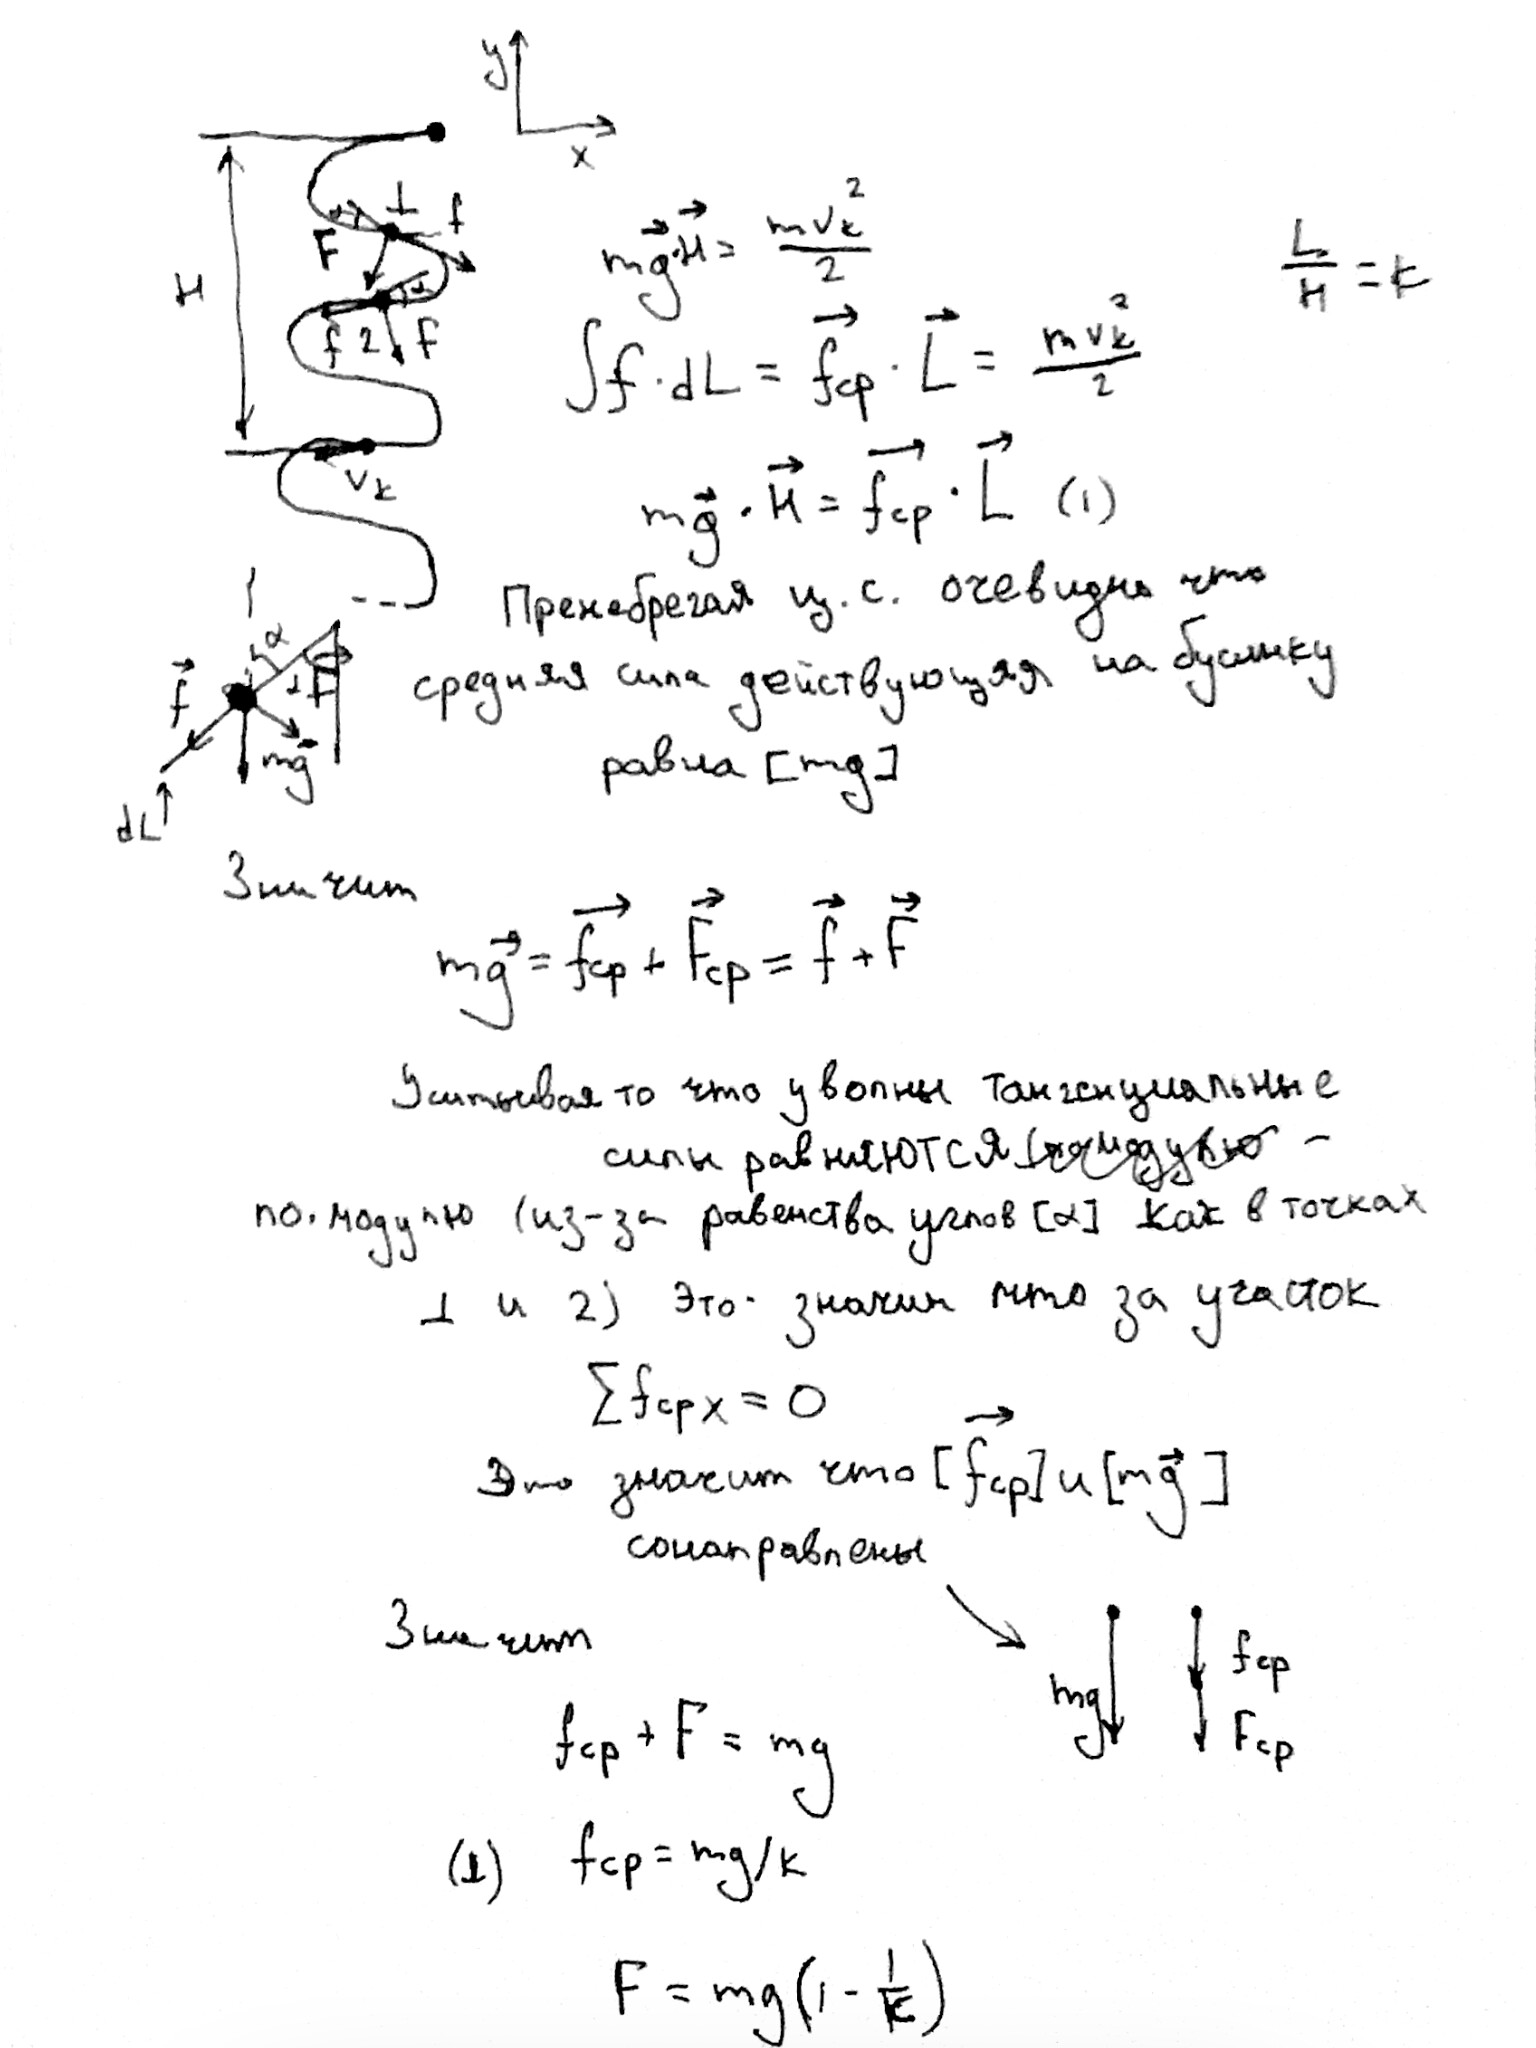 y
x
H
1
f
F
α
f 2 F
v_k
mg⃗·H⃗ = mv_k²/2
L/H = k
∫f·dL = f_ср⃗ · L⃗ = mv_k²/2
mg⃗ · H⃗ = f_ср⃗ · L⃗ (1)
Пренебрегая ц.с. очевидно что
средняя сила действующая на бусинку
равна [mg]
α
f⃗
F
mg⃗
dL
Значит
mg⃗ = f_ср⃗ + F_ср⃗ = f⃗ + F⃗
Учитывая то что у волны тангенциальные
силы равняются
по модулю (из-за равенства углов [α] как в точках
1 и 2) Это значит что за участок
∑f_ср x = 0
Это значит что [f_ср⃗] и [mg⃗]
сонаправлены
Значит
mg
f_ср
F_ср
f_ср + F = mg
(1) f_ср = mg/k
F = mg(1 - 1/k)